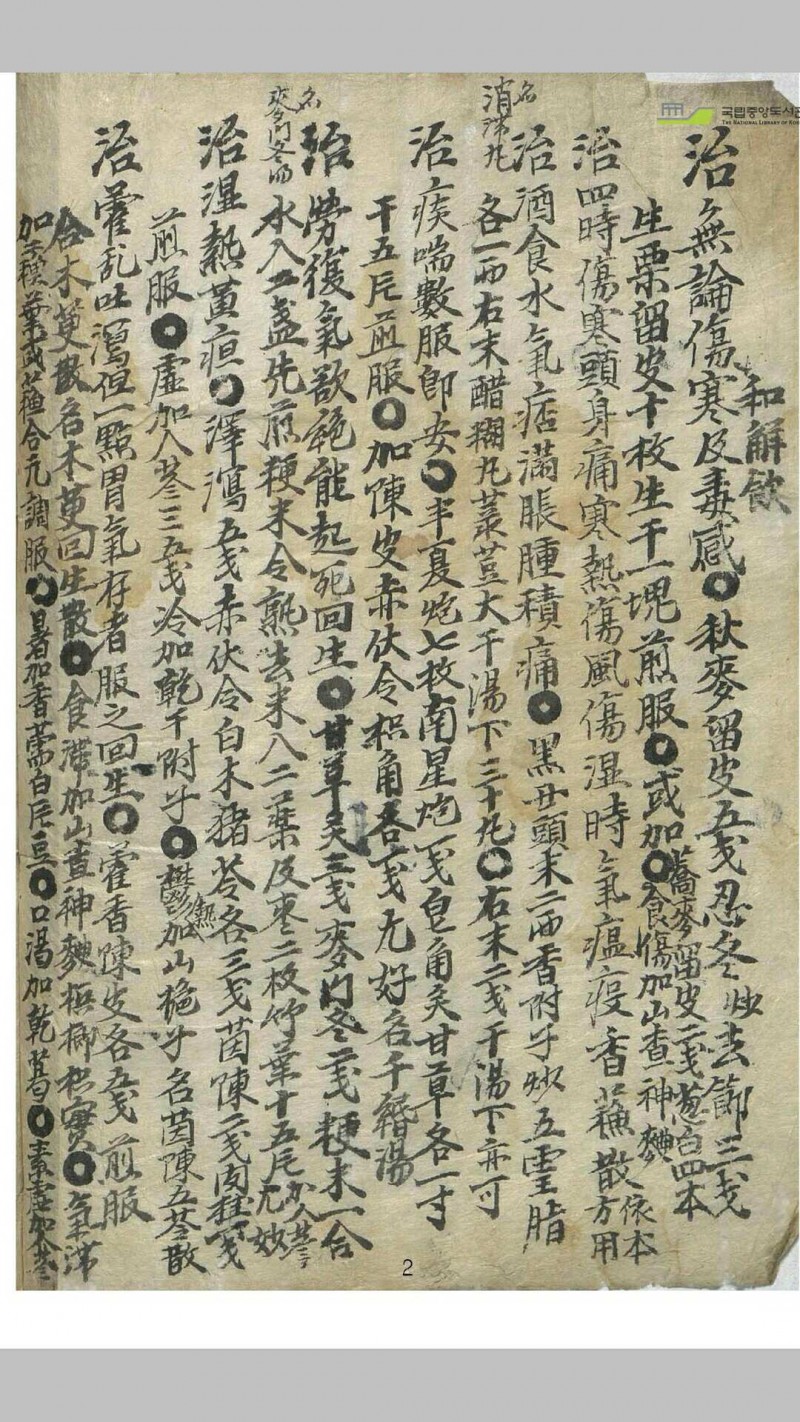 국립중앙도서관
THE NATIONAL LIBRARY OF KOREA
和解飮
治無論傷寒及毒感〇秋麥留皮五戔忍冬炒去節三戔
蕎麥留皮二戔葱白四本
生栗留皮十枚生干一塊煎服〇或加〇食傷加山查神麯
治四時傷寒頭身痛寒熱傷風傷湿時氣瘟疫香蘓散依本方用
治酒食水氣痞滿脹腫積痛〇黑丑頭末二兩香附子炒五灵脂
名消滯丸
各一兩右末醋糊丸菉荳大干湯下三十丸〇右末二戔干湯下亦可
治痰喘數服卽安〇半夏炮七枚南星炮一戔皂角炙甘草各一寸
干五片煎服〇加陳皮赤伏令枳角各一戔尤好名千緡湯
治勞復氣欲絶能起死回生〇甘草炙三戔麥門冬二戔粳米一合
名麥門冬湯
水入二盞先煎粳米令熟去米入二藥及枣二枚竹葉十五片加人參尤妙
治湿熱黃疸〇澤瀉五戔赤伏令白木猪苓各三戔茵陳二戔肉桂一戔
煎服〇虛加人參三五戔冷加乾干附子〇鬱熱加山梔子名茵陳五苓散
治藿乱吐瀉但一點胃氣存者服之回生〇藿香陳皮各五戔煎服
合木萸散名木萸回生散〇食滯加山查神麯梹榔枳實〇氣滯
加蘓葉或蘓合元調服〇暑加香薷白扁豆〇口渴加乾葛〇素虛加人參
2